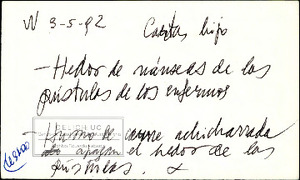 W 3-5-92 Cartas hijo
- Hedor de náuseas de las
pústulas de los enfermos
- Humo de carne achicharrada
apagan el hedor de las
pústulas.